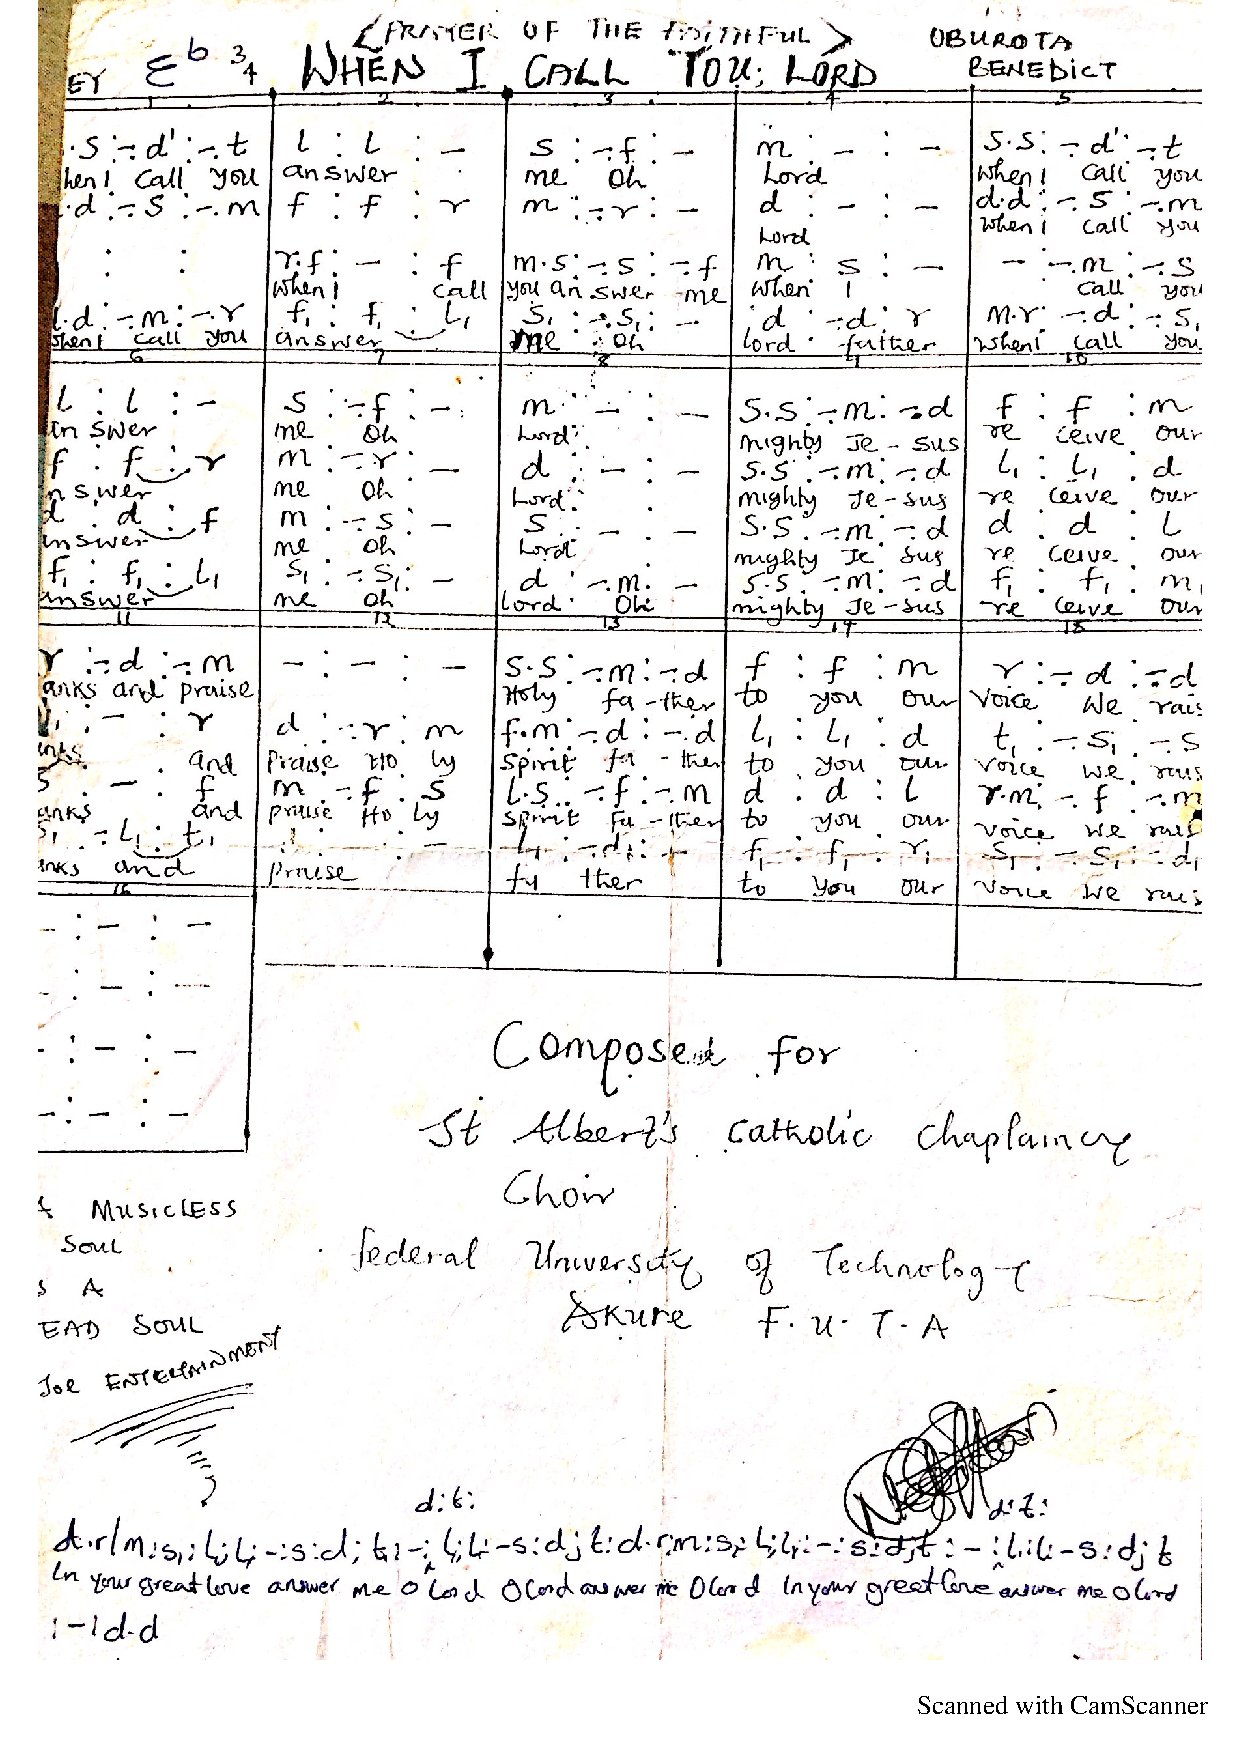 <PRAYER OF THE FAITHFUL>
OBUROTA
EY Eb 3/4 WHEN I CALL YOU; LORD BENEDICT
1 2 3 4 5
.s :-.d' :-.t | l : l : - | s :-.f : - | m : - : - | s.s :-.d' :-.t
hen I call you answer me oh Lord When I call you
.d :-.s :-.m | f : f : r | m :-.r : - | d : - : - | d.d :-.s :-.m
Lord When I call you
: : | r.f : - : f | m.s :-.s :-.f | m : s : - | - :-.m :-.s
When I call you answer me when I call you
d.d :-.m :-.r | f₁ : f₁ : l₁ | s₁ :-.s₁ : - | d :-.d : r | m.r :-.d :-.s₁
When I call you answer me oh lord father When I call you
6 7 8 9 10
l : l : - | s :-.f : - | m : - : - | s.s :-.m :-.d | f : f : m
an swer me oh Lord mighty Je - sus re ceive our
f : f : r | m :-.r : - | d : - : - | s.s :-.m :-.d | l₁ : l₁ : d
nswer me oh Lord mighty Je - sus re ceive our
d : d : f | m :-.s : - | s : - : - | s.s :-.m :-.d | d : d : l
answer me oh Lord mighty Je sus re ceive our
f₁ : f₁ : l₁ | s₁ :-.s₁ : - | d :-.m : - | s.s :-.m :-.d | f₁ : f₁ : m₁
answer me oh lord Oh mighty Je - sus re ceive our
11 12 13 14 15
r :-.d :-.m | - : - : - | s.s :-.m :-.d | f : f : m | r :-.d :-.d
anks and praise Holy fa - ther to you our voice we rais
: - : r | d :-.r : m | f.m :-.d :-.d | l₁ : l₁ : d | t₁ :-.s₁ :-.s
anks and praise Ho ly spirit fa - ther to you our voice we rais
s : - : f | m :-.f : s | l.s :-.f :-.m | d : d : l | r.m :-.f :-.m
anks and praise Ho ly spirit fa - ther to you our voice we rais
s₁ :-.l₁ : t₁ | : - : - | l₁ :-.d₁ : - | f₁ : f₁ : r₁ | s₁ :-.s₁ :-.d₁
anks and praise fa ther to you our voice we rais
16
- : - : -
- : - : -
- : - : -
- : - : -
Composed for
St Albert's Catholic Chaplaincy
Choir
Federal University of Technology
Akure F.U.T.A
A MUSICLESS
SOUL
S A
EAD SOUL
JOE ENTERTAINMENT
d:t: d:t:
d.r/m:s₁:l₁:l₁-:s:d; t₁:-:l₁:l₁-s:d; t:d.r:m:s₁:l₁:l₁:-:s:d:t:-:l₁:l₁-s:d; t
In your great love answer me O Lord O Lord answer me O Lord In your great love answer me O Lord
:-| d.d
Scanned with CamScanner